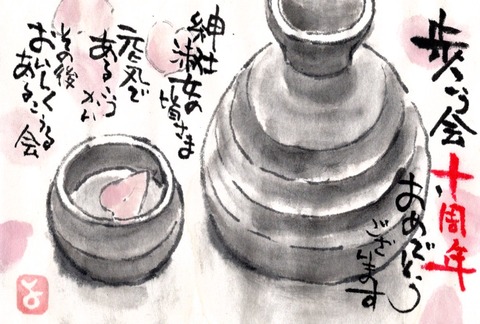 歩こう会十周年
おめでとう
ございます
紳士
淑女の
皆さま
元気で
あるこう
その後
おいしく
ある 会
と